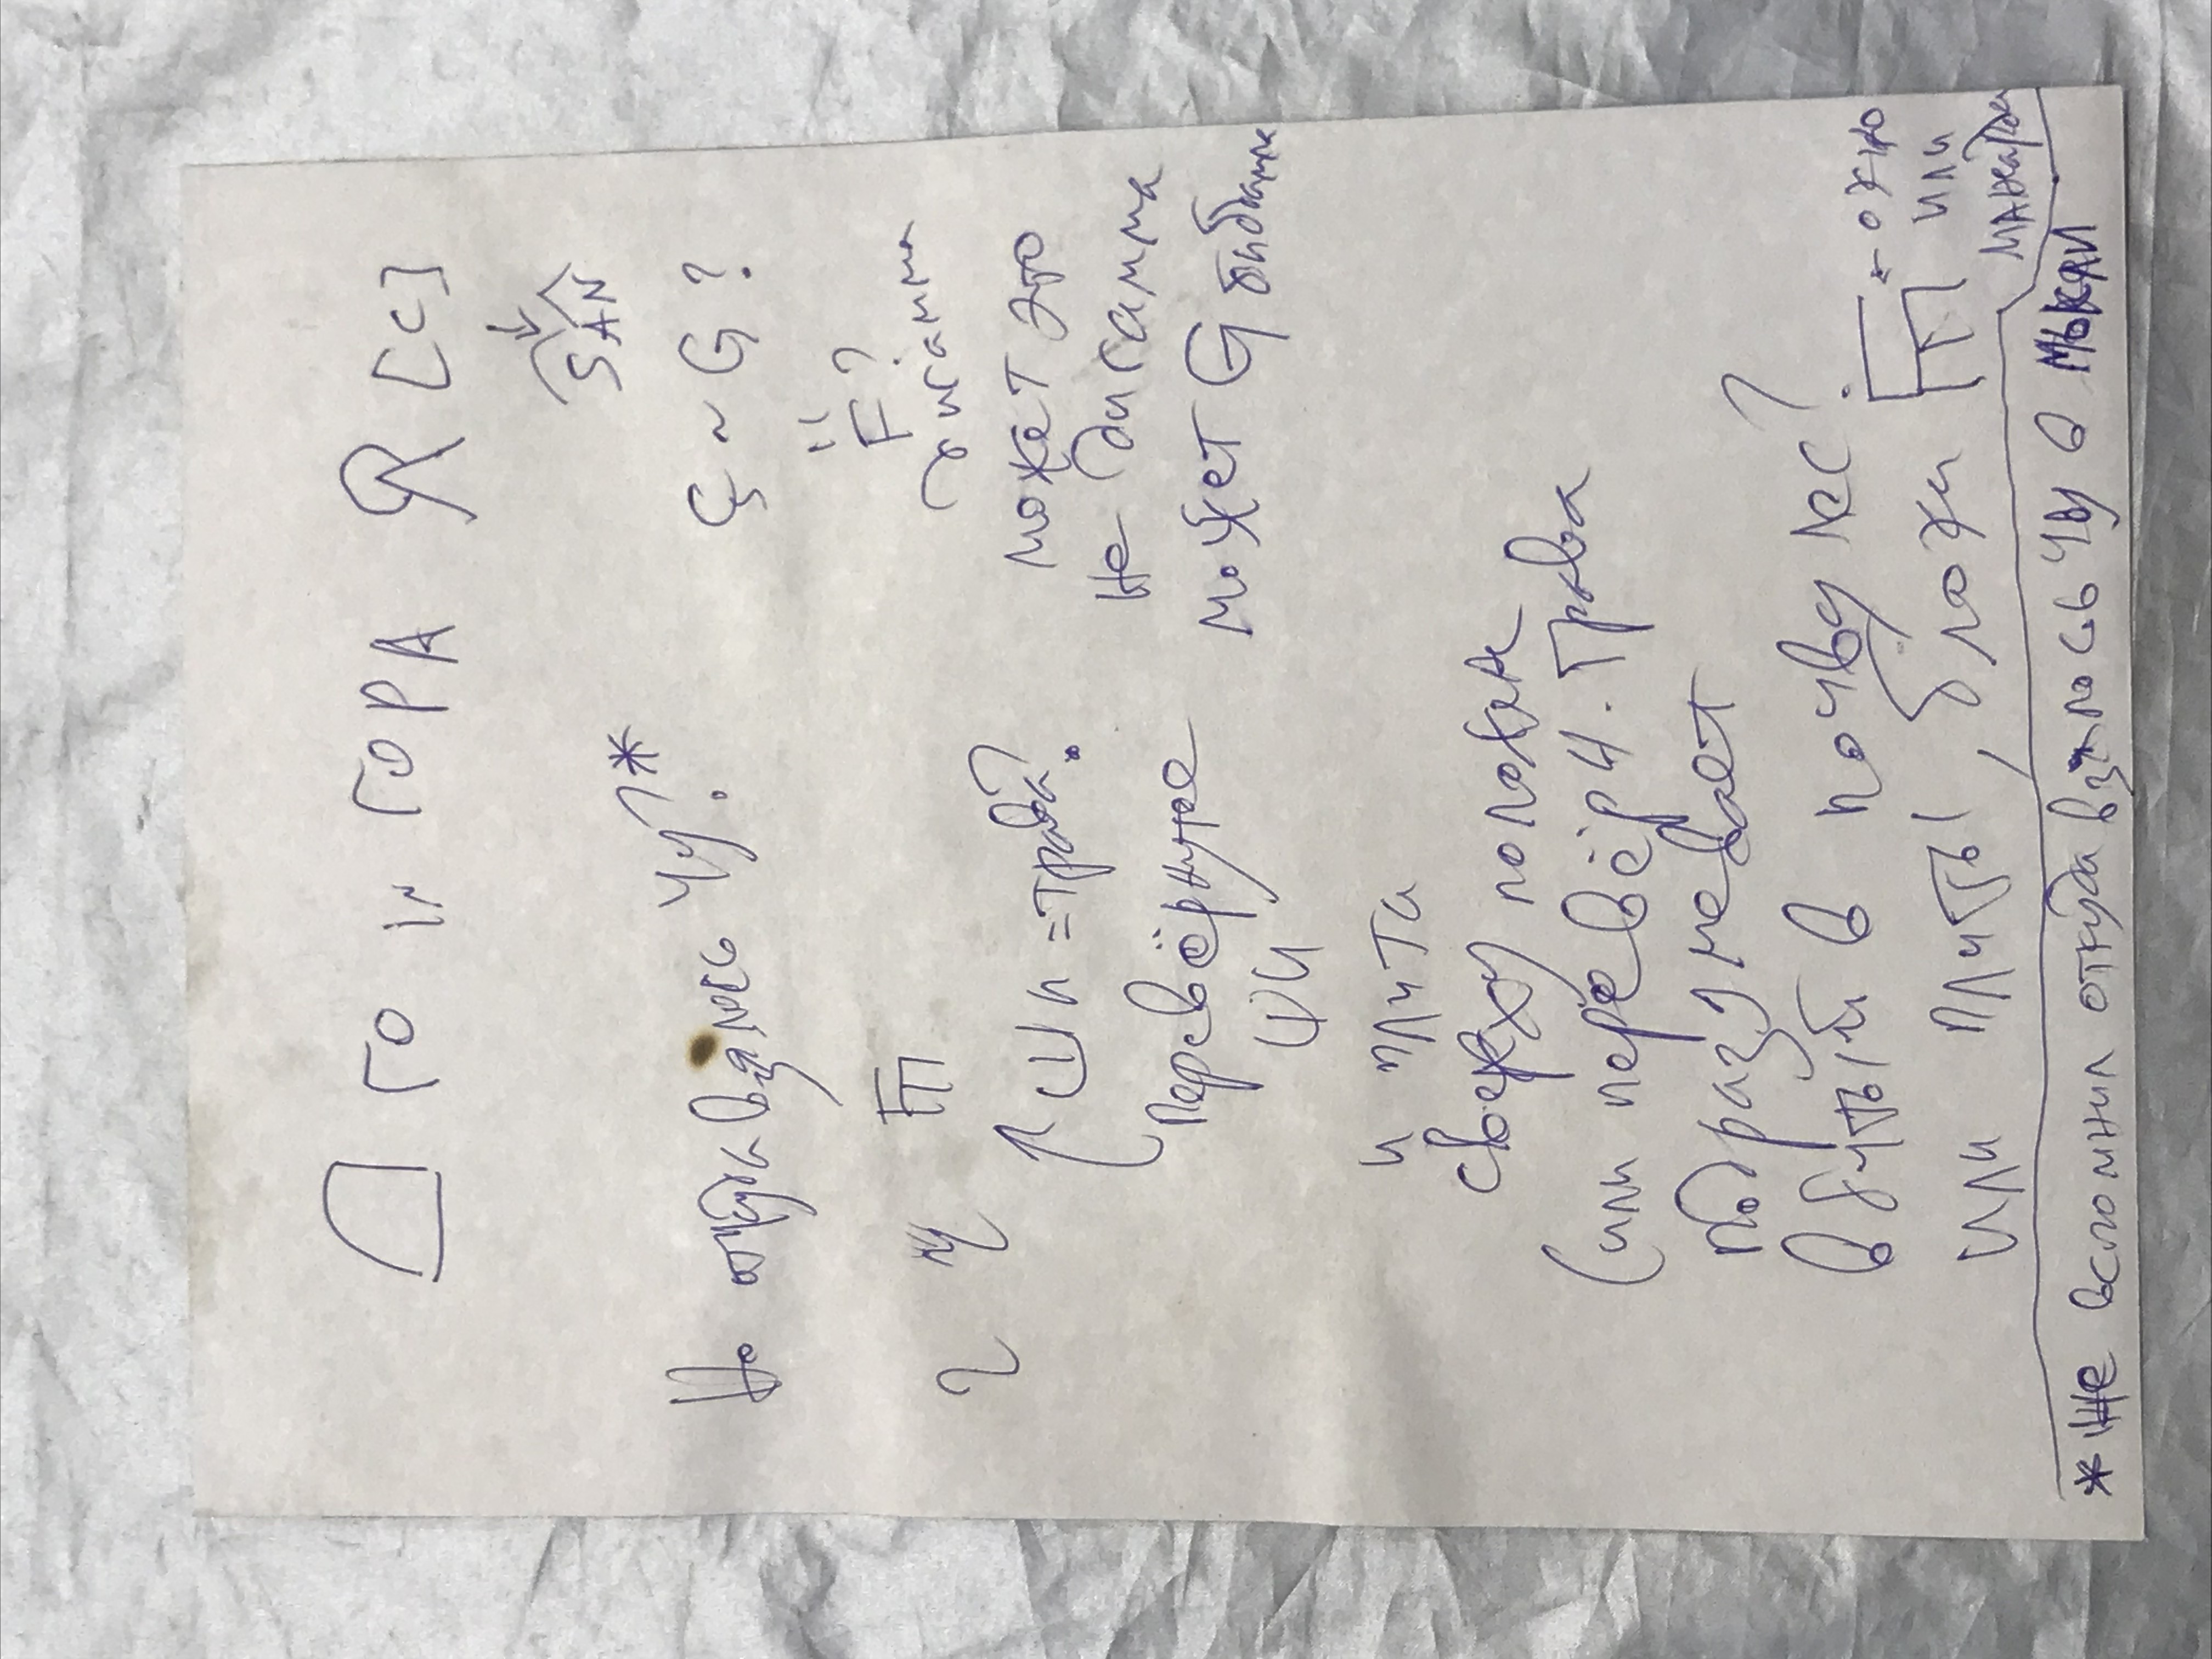 го in ГОРА Я [С]
SAN
Но откуда взялось Чу?*
Ç ~ G ?
F ?
дигамма
может это
не дигамма
может G
Ши = трава?
Перевёрнутое
ши
и плита
сверху положена
(или перевёрн. трава
подразумевает
вбитый в почву лес?
или плиты, блока
← окно
или
мансарда
* Не вспомнил откуда взялось Чу в